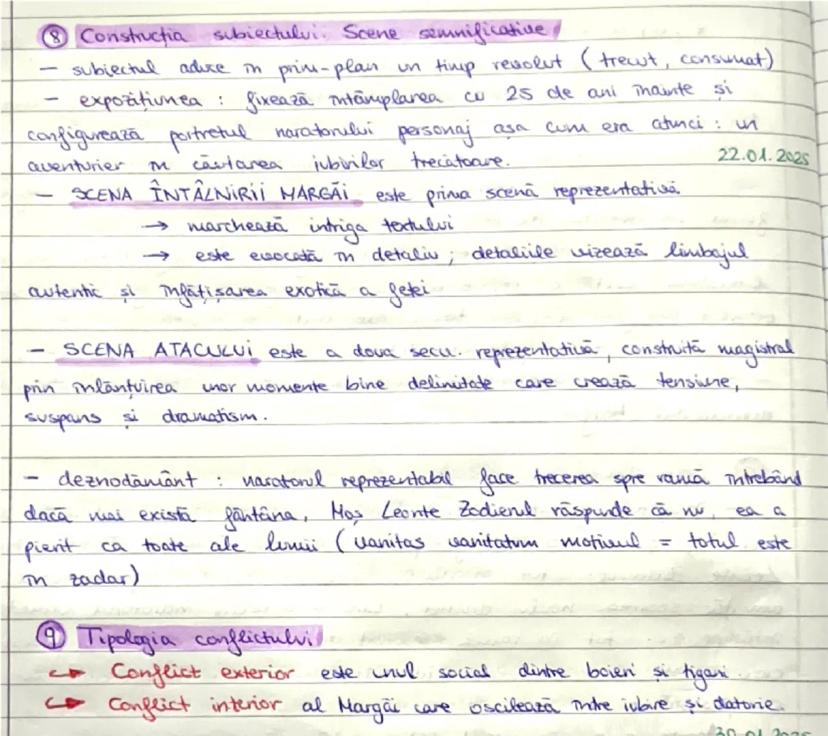 ⑧ Construcția subiectului. Scene semnificative
– subiectul aduce în prim-plan un timp revolut (trecut, consumat)
– expozițiunea : fixează întâmplarea cu 25 de ani înainte și
configurează portretul naratorului personaj așa cum era atunci : un
aventurier în căutarea iubirilor trecătoare. 22.01.2025
– SCENA ÎNTÂLNIRII MARGĂI este prima scenă reprezentativă.
→ marchează intriga textului
→ este evocată în detaliu ; detaliile vizează limbajul
autentic și înfățișarea exotică a fetei
– SCENA ATACULUI este a doua secv. reprezentativă, construită magistral
prin înlănțuirea unor momente bine delimitate care crează tensiune,
suspans și dramatism.
– deznodământ : naratorul reprezentabil face trecerea spre ramă întrebând
dacă mai există fântâna, Moș Leonte Zodierul răspunde că nu, ea a
pierit ca toate ale lumii (vanitas vanitatum motivul = totul este
în zadar)
⑨ Tipologia conflictului
↪ Conflict exterior este unul social dintre boieri și țigani.
↪ Conflict interior al Margăi care oscilează între iubire și datorie.
30.01.2025